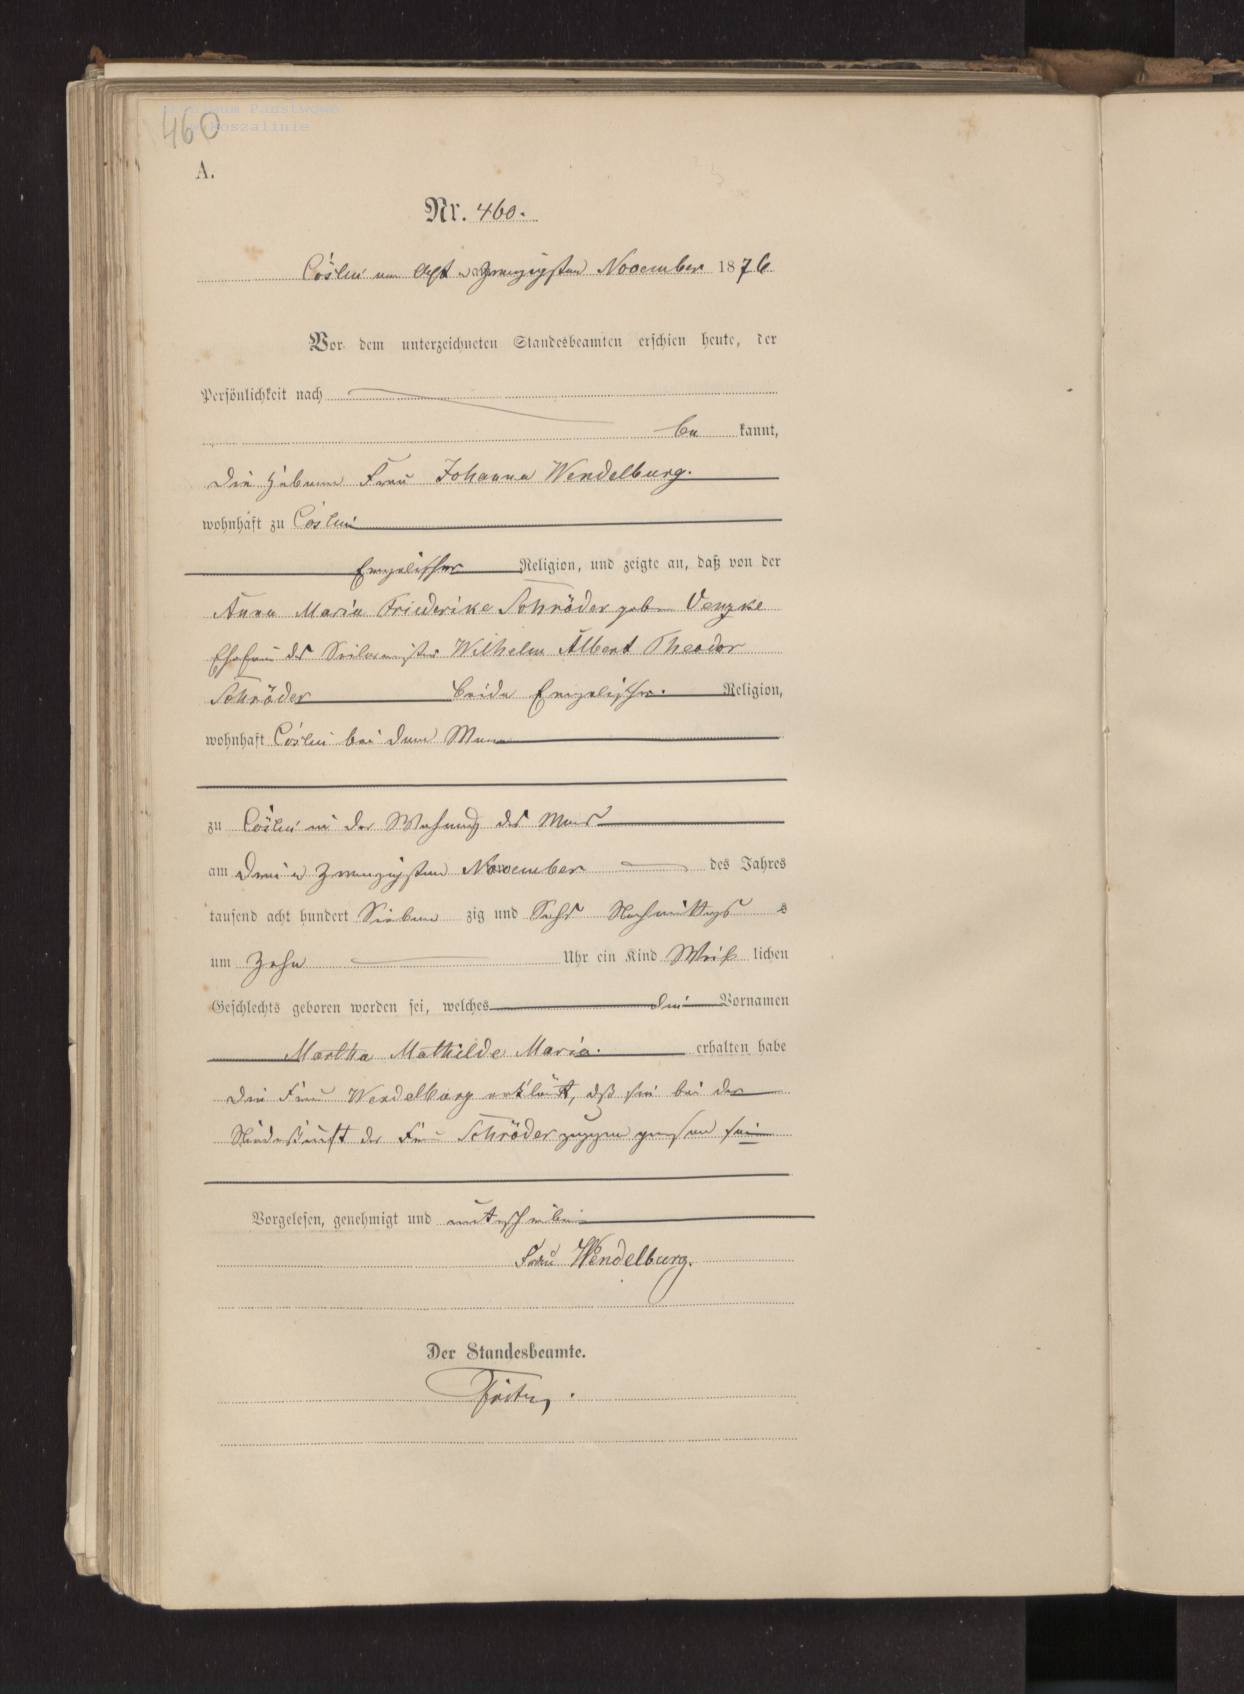 460
Archiwum Państwowe
w Koszalinie
A.
Nr. 460.
Cöslin am Acht u zwanzigsten November 1876
Vor dem unterzeichneten Standesbeamten erschien heute, der
Persönlichkeit nach
be kannt,
die Hebamme Frau Johanna Wendelburg.
wohnhaft zu Cöslin
Evangelischer Religion, und zeigte an, daß von der
Anna Maria Friederike Schröder geborn Venzke
Ehefrau des Seilermeister Wilhelm Albert Theodor
Schröder beide Evangelischer Religion,
wohnhaft Cöslin bei dem Mann
zu Cöslin in der Wohnung des Mannes
am Drei u zwanzigsten November des Jahres
tausend acht hundert Sieben zig und Sechs Nachmittags s
um Zehn Uhr ein Kind Weib lichen
Geschlechts geboren worden sei, welches die Vornamen
Martha Mathilde Maria. erhalten habe
Die Frau Wendelburg erklärt, daß sie bei der
Niederkunft der Frau Schröder zugegen gewesen sei
Vorgelesen, genehmigt und unterschrieben
Frau Wendelburg.
Der Standesbeamte.